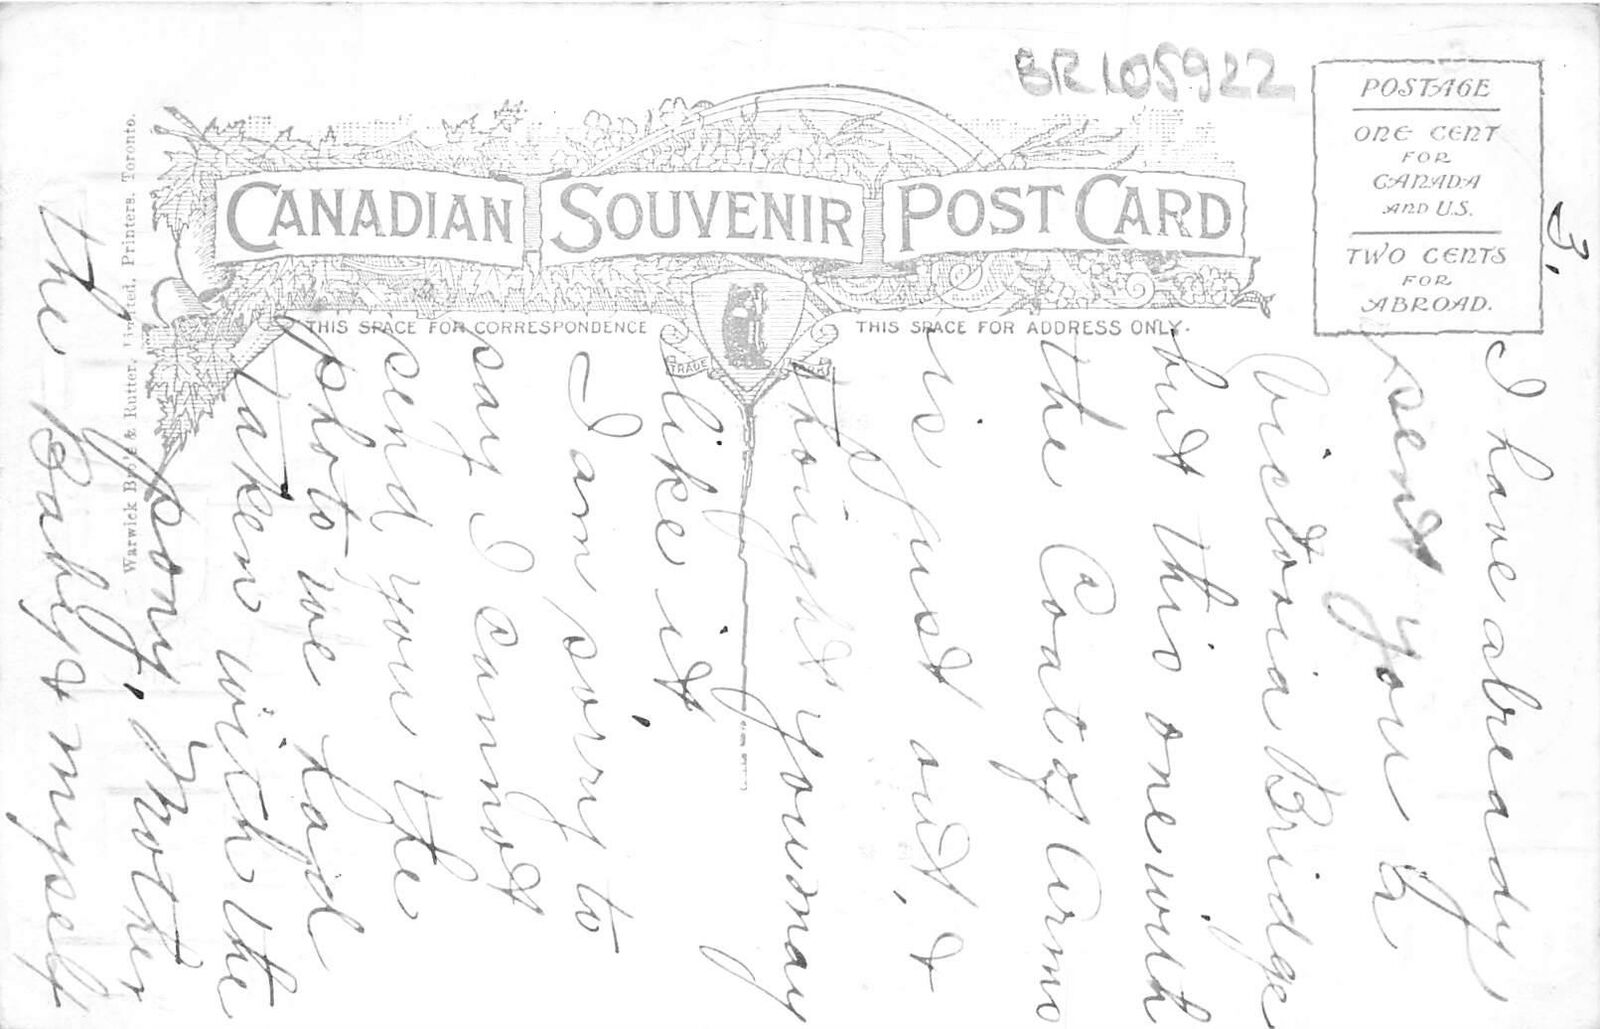 BR105922
CANADIAN SOUVENIR POST CARD
POSTAGE
ONE CENT
FOR
CANADA
AND U.S.
TWO CENTS
FOR
ABROAD.
THIS SPACE FOR CORRESPONDENCE
THIS SPACE FOR ADDRESS ONLY.
TRADE MARK
Warwick Bro's & Rutter, Limited, Printers, Toronto.
3.
I have already
sent you a
Victoria Bridge
but this one with
the Coat of Arms
is just out, &
thought you may
like it
I am sorry to
say I cannot
send you the
photo we had
taken with the
pony, Mother
the Baby & myself